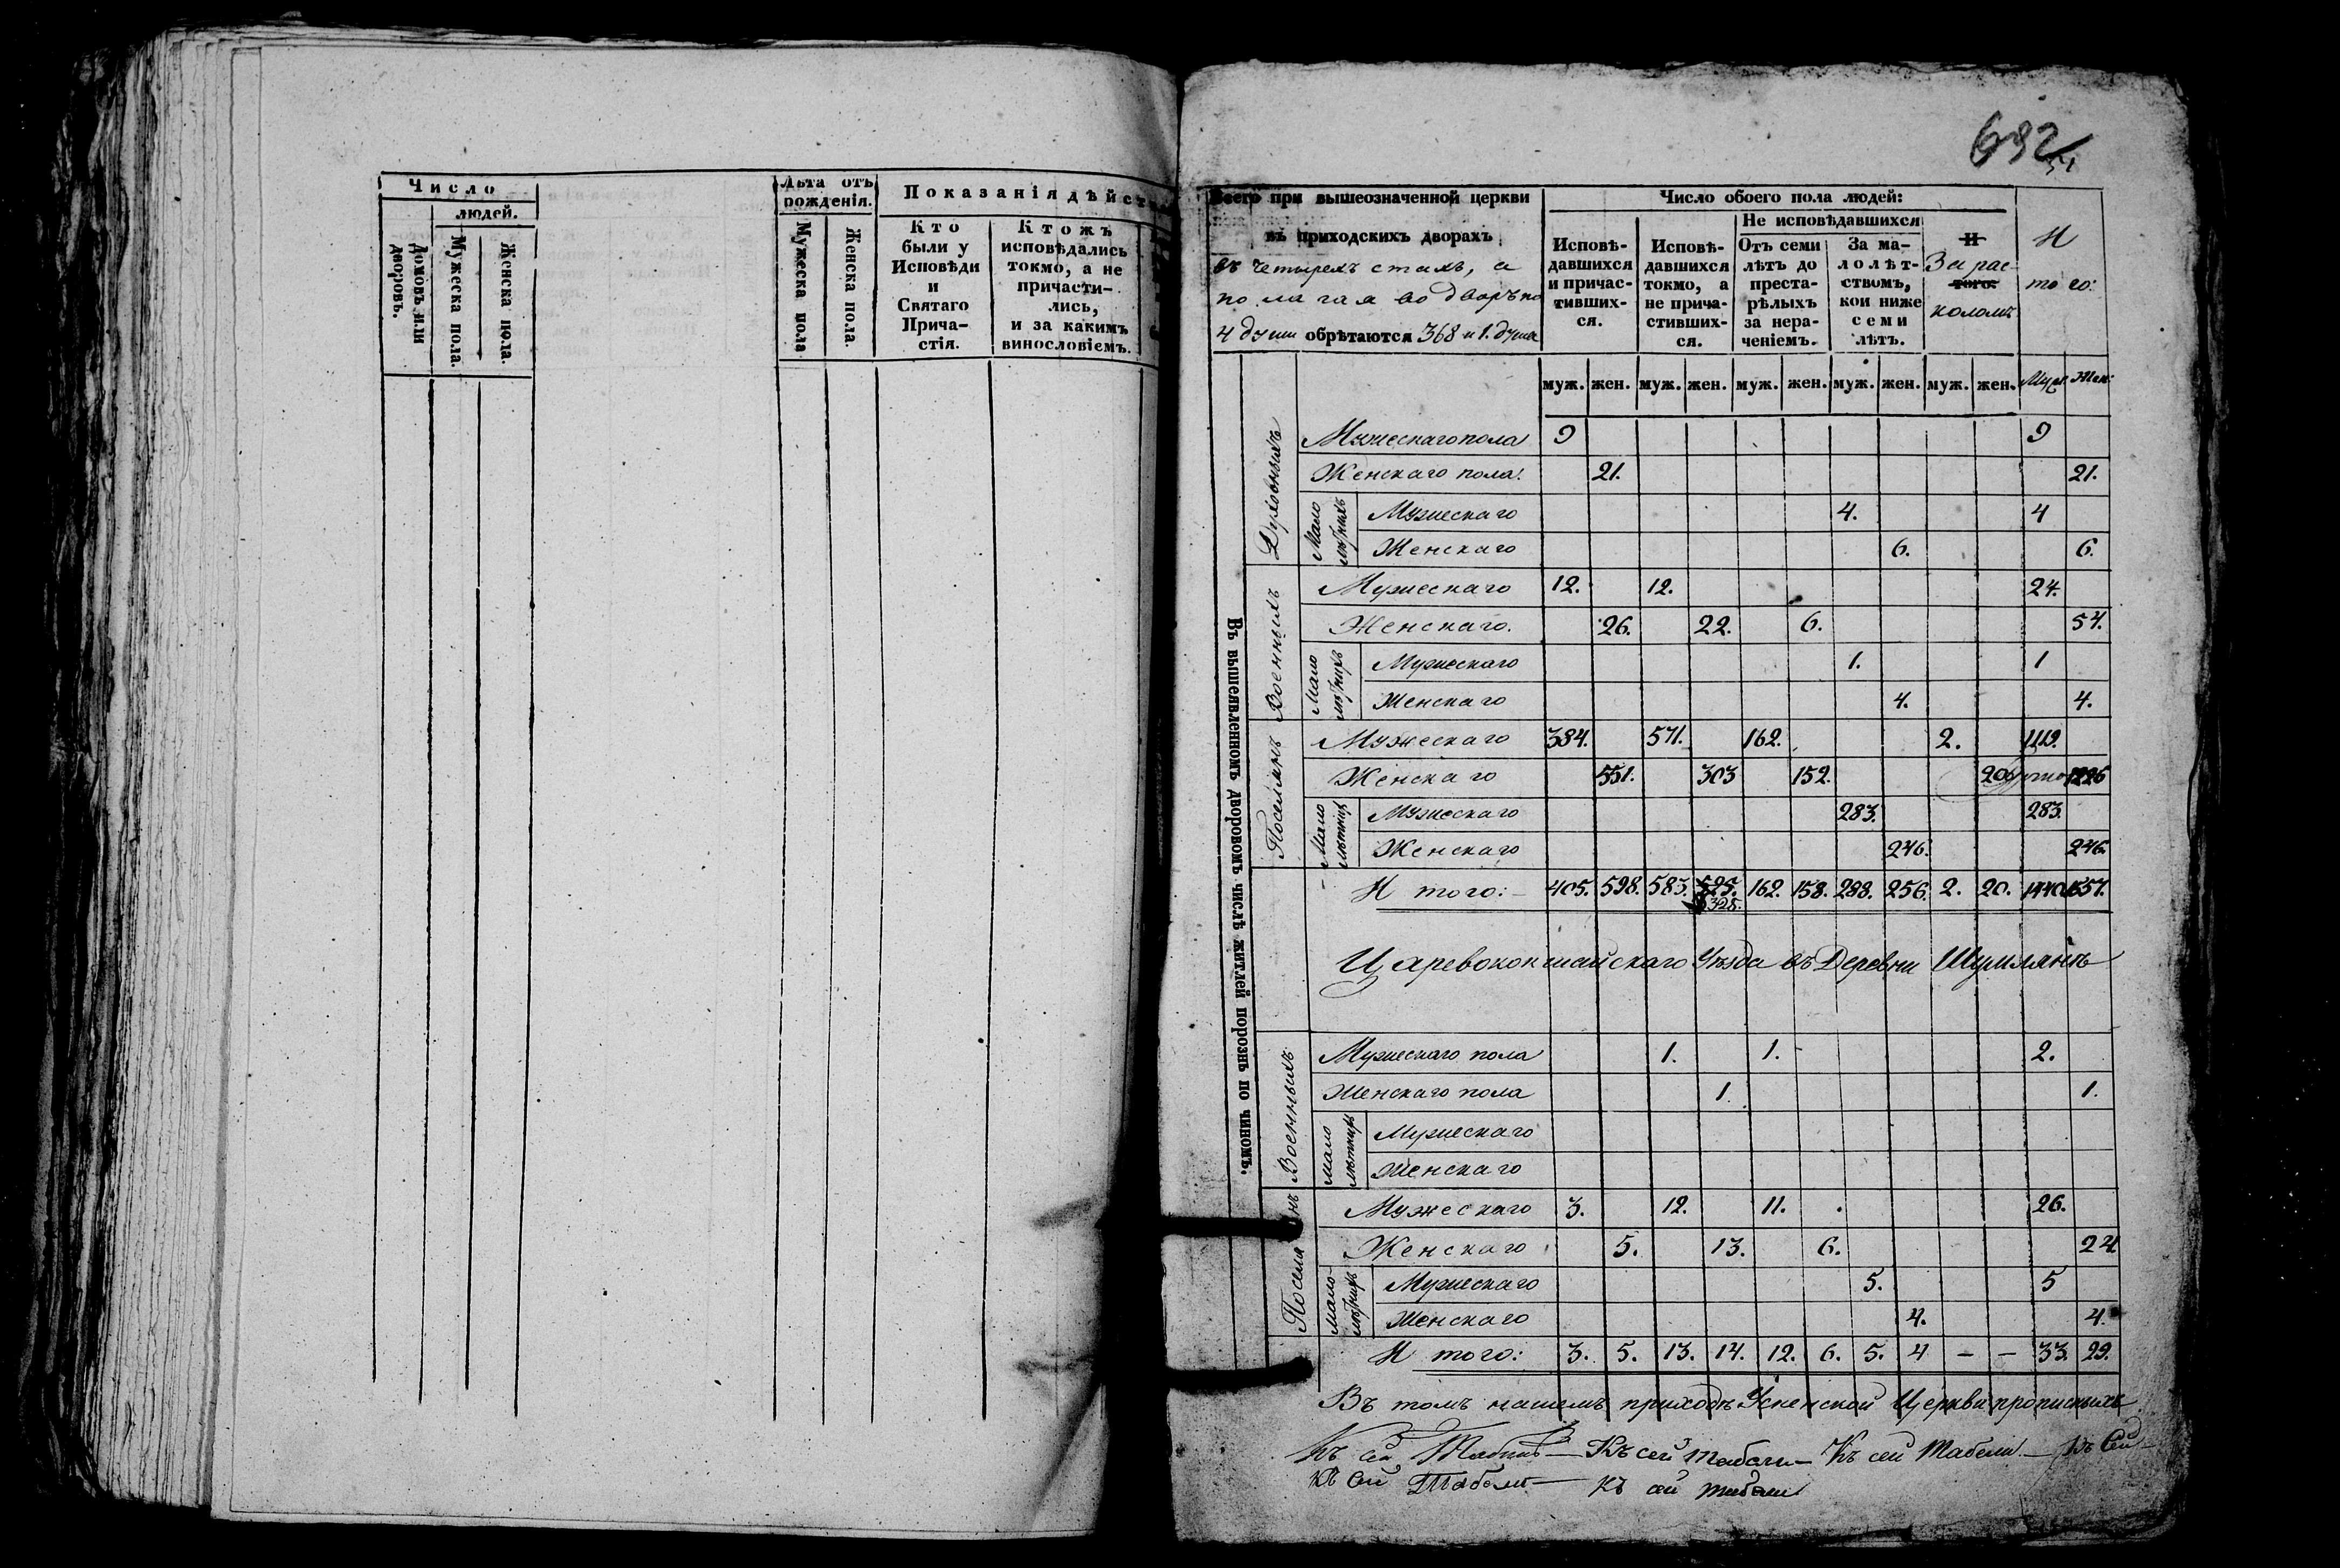 Число
людей.
Домовъ или дворовъ.
Мужеска пола.
Женска пола.
Лѣта отъ рожденія.
Мужеска пола
Женска пола.
Показанія дѣйст
Кто
были у
Исповѣди
и
Святаго
Прича-
стія.
Ктожъ
исповѣдались
токмо, а не
причасти-
лись,
и за какимъ
винословіемъ.
692
Всего при вышеозначенной церкви
въ приходскихъ дворахъ
въ четырехъ стахъ, а
полагая во дворъ по
4 души обрѣтаются 368 и 1. душа
Число обоего пола людей:
Исповѣ-
давшихся
и причас-
тивших-
ся.
Исповѣ-
давшихся
токмо, а
не прича-
стивших-
ся.
Не исповѣдавшихся
Отъ семи
лѣтъ до
преста-
рѣлыхъ
за нера-
ченіемъ.
За ма-
лолѣт-
ствомъ,
кои ниже
семи
лѣтъ.
И
За рас-
того.
коломъ
И
того:
муж. жен. муж. жен. муж. жен. муж. жен. муж. жен. Муж. Жен:
Въ вышеявленномъ дворовомъ числѣ жителей порознь по чиномъ.
Духовныхъ
Мужескаго пола 9 9
Женскаго пола. 21. 21.
Мало лѣтныхъ
Мужескаго 4. 4
Женскаго 6. 6.
Военныхъ
Мужескаго 12. 12. 24.
Женскаго. 26. 22. 6. 54.
Мало лѣтнихъ
Мужескаго 1. 1
Женскаго 4. 4.
Поселянъ
Мужескаго 384. 571. 162. 2. 1119.
Женскаго 551. 303 152. 20
Мало лѣтнихъ
Мужескаго 283. 283.
Женскаго 246. 246.
И того: 405. 598. 583. 525. 162. 158. 288. 256. 2. 20. 1440 1557.
325.
Царевококшайскаго Уѣзда въ Деревни Шумлянкѣ
Военныхъ
Мужескаго пола 1. 1. 2.
Женскаго пола 1. 1.
Мало лѣтнихъ
Мужескаго
Женскаго
Поселянъ
Мужескаго 3. 12. 11. 26.
Женскаго 5. 13. 6. 24.
Мало лѣтнихъ
Мужескаго 5. 5
Женскаго 4. 4.
И того: 3. 5. 13. 14. 12. 6. 5. 4 — — 33. 29.
Въ томъ нашемъ приходѣ Успенской Церкви прописныхъ
Къ сей Табели — Къ сей табели — Къ сей Табели — Къ Сей
Къ Сей Табели — Къ сей табели